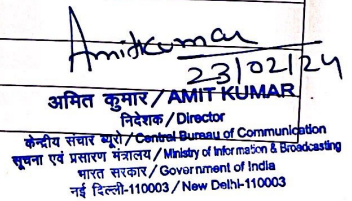 Amitkumar
23/02/24
अमित कुमार / AMIT KUMAR
निदेशक / Director
केन्द्रीय संचार ब्यूरो / Central Bureau of Communication
सूचना एवं प्रसारण मंत्रालय / Ministry of Information & Broadcasting
भारत सरकार / Government of India
नई दिल्ली-110003 / New Delhi-110003